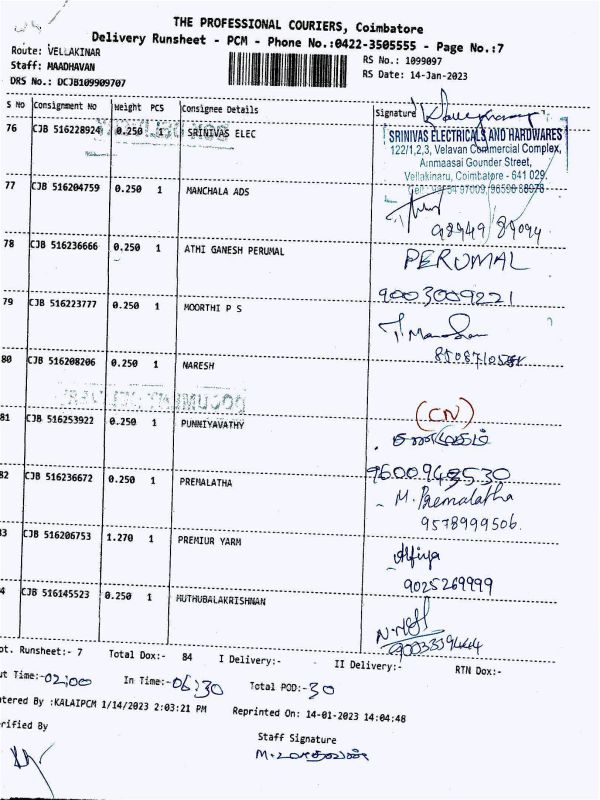 THE PROFESSIONAL COURIERS, Coimbatore
Delivery Runsheet - PCM - Phone No.:0422-3505555 - Page No.:7
Route: VELLAKINAR
Staff: MAADHAVAN
DRS No.: DCJB109909707
RS No.: 1099097
RS Date: 14-Jan-2023
S No Consignment No Weight PCS Consignee Details Signature
76 CJB 516228924 0.250 1 SRINIVAS ELEC
SRINIVAS ELECTRICALS AND HARDWARES
122/1,2,3, Velavan Commercial Complex,
Ammaasai Gounder Street,
Vellakinaru, Coimbatore - 641 029.
77 CJB 516204759 0.250 1 MANCHALA ADS
78 CJB 516236666 0.250 1 ATHI GANESH PERUMAL
PERUMAL
9003009221
79 CJB 516223777 0.250 1 MOORTHI P S
80 CJB 516208206 0.250 1 NARESH
(CN)
81 CJB 516253922 0.250 1 PUNNIYAVATHY
82 CJB 516236672 0.250 1 PREMALATHA
M. Premalatha
9578999506.
83 CJB 516206753 1.270 1 PREMIUR YARM
Alfiya
9025269999
4 CJB 516145523 0.250 1 MUTHUBALAKRISHNAN
ot. Runsheet:- 7 Total Dox:- 84 I Delivery:- II Delivery:- RTN Dox:-
ut Time:-02:00 In Time:-06:30 Total POD:-30
tered By :KALAIPCM 1/14/2023 2:03:21 PM Reprinted On: 14-01-2023 14:04:48
rified By
Staff Signature
M. மாதவன்